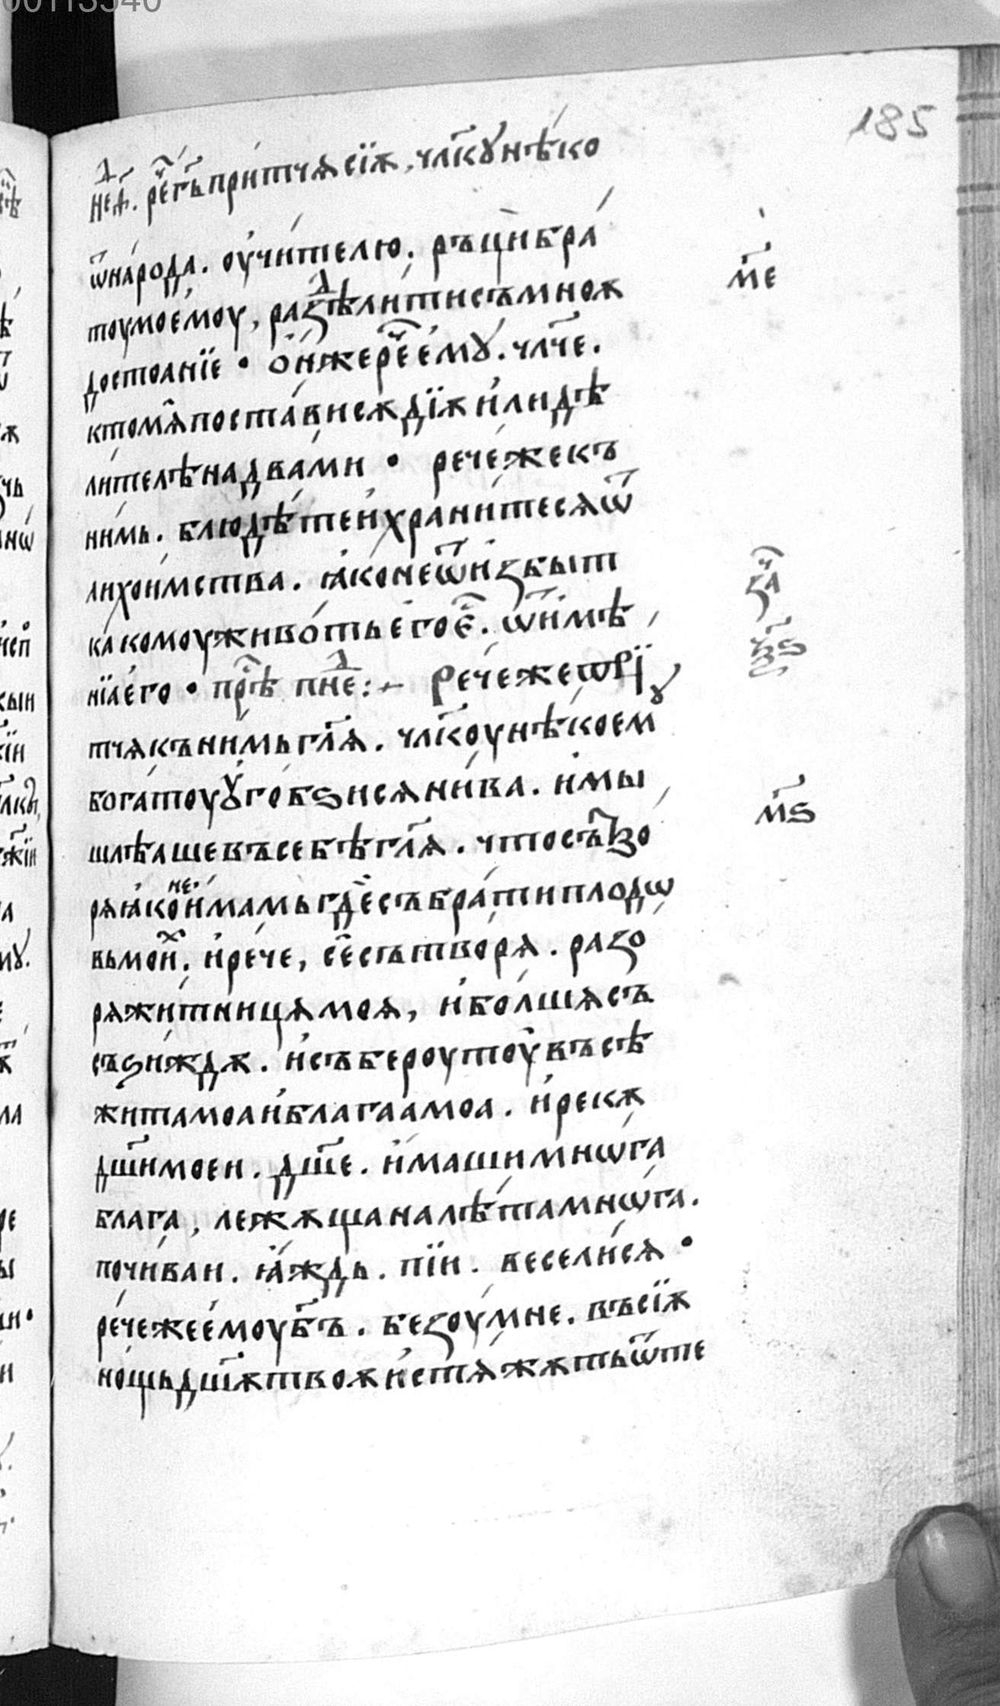 00113540
185
нед҃. рече г҃ь притчѧ сїѫ, чл҃кꙋ нѣко
ѿ народа. оучителю. ръци бра
тоу моемоу, раздѣлити съ мноѫ
достоанїе • ѡнже рече емꙋ. чл҃че.
кто мѧ постави сѫдїѫ или дѣ
лителѣ над вами • рече же къ
нимь. блюдѣте и хранитесѧ ѿ
лихоимства. ꙗко не ѿ избыт
ка комоу животь его е҃. ѿ имѣ
нїа его • прⷣѣ пнⷣе :~ Рече же г҃ь прї
тчѧ къ нимь гл҃ѧ. чл҃коу нѣкоемꙋ
богатоу ꙋгобѕисѧ нива. и мы
шлѣаше въ себѣ гл҃ѧ. что сътво
рѧ ꙗко не имамь где събрати плодѡ
вь моиⷯ. и рече, се сътворѧ. разо
рѧ житницѧ моѧ, и болшѧ съ
съзиждѫ. и събероу тоу въсѣ
жита моа и благаа моа. и рекѫ
дш҃и моеи. дш҃е. имаши мнѡга
блага, лежѧща на лѣта мнѡга.
почиваи. ꙗждь. пїи. веселисѧ •
рече же емоу б҃ъ. безоумне. въ сїѫ
нощь дш҃ѫ твоѫ истѧжѫть ѿ те
м҃е
за҃
ꙁ҃ѕ
м҃ѕ